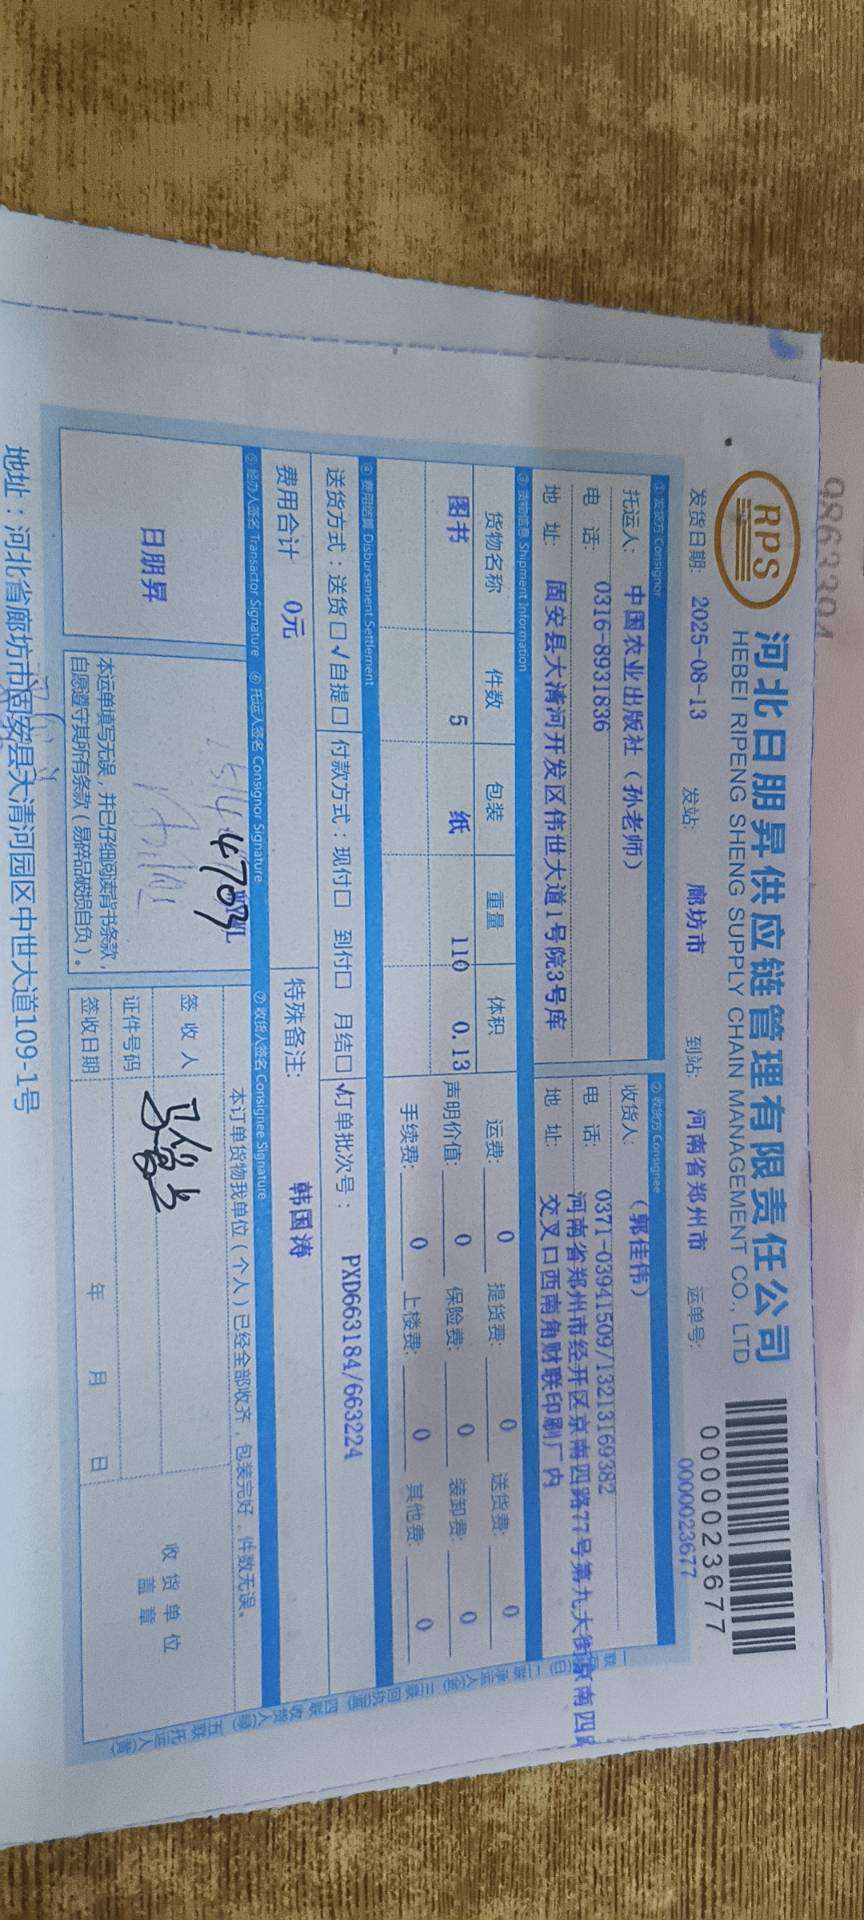 9863394
RPS
河北日朋昇供应链管理有限责任公司
HEBEI RIPENG SHENG SUPPLY CHAIN MANAGEMENT CO., LTD
0000023677
发货日期: 2025-08-13 发站: 廊坊市 到站: 河南省郑州市 运单号: 0000023677
① 发货方 Consignor
托运人: 中国农业出版社（孙老师）
电 话: 0316-8931836
地 址: 固安县大清河开发区伟世大道1号院3号库
② 收货方 Consignee
收货人: （郭佳伟）
电 话: 0371-03941509/13213169382
地 址: 河南省郑州市经开区京南四路77号第九大街京南四路
交叉口西南角财联印刷厂内
③ 货物信息 Shipment Information
货物名称 件数 包装 重量 体积
图书 5 纸 110 0.13
运费: 0 提货费: 0 送货费: 0
声明价值: 0 保险费: 0 装卸费: 0
手续费: 0 上楼费: 0 其他费: 0
④ 费用结算 Disbursement Settlement
送货方式：送货□ √自提□ 付款方式：现付□ 到付□ 月结□ √订单批次号： PXD663184/663224
费用合计 0元 特殊备注: 韩国涛
⑤ 经办人签名 Transactor Signature
日朋昇
⑥ 托运人签名 Consignor Signature
4703
本运单填写无误，并已仔细阅读背书条款，
自愿遵守其所有条款（易碎品破损自负）。
⑦ 收货人签名 Consignee Signature
本订单货物我单位（个人）已经全部收齐，包装完好，件数无误。
签 收 人
证件号码
签收日期 年 月 日
收货单位
盖 章
地址：河北省廊坊市固安县大清河园区中世大道109-1号